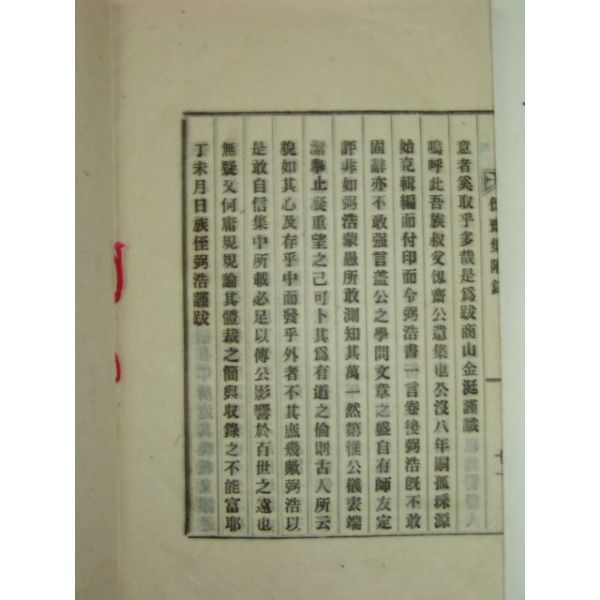 意者奚取乎多哉是爲跋商山金㯋謹識
嗚呼此吾族叔父傀齋公遺集也公沒八年嗣孤琛源
始克輯編而付印而令弼浩書一言卷後弼浩旣不敢
固辭亦不敢强言盖公之學問文章之盛自有師友定
評非如弼浩蒙愚所敢測知其萬一然第惟公儀表端
潔擧止凝重望之已可卜其爲有道之倫則古人所云
貌如其心及存乎中而發乎外者不其庶幾歟弼浩以
是敢自信集中所載必足以傳公影響於百世之遠也
無疑又何庸規規論其體裁之簡與收錄之不能富耶
丁未月日族侄弼浩謹跋